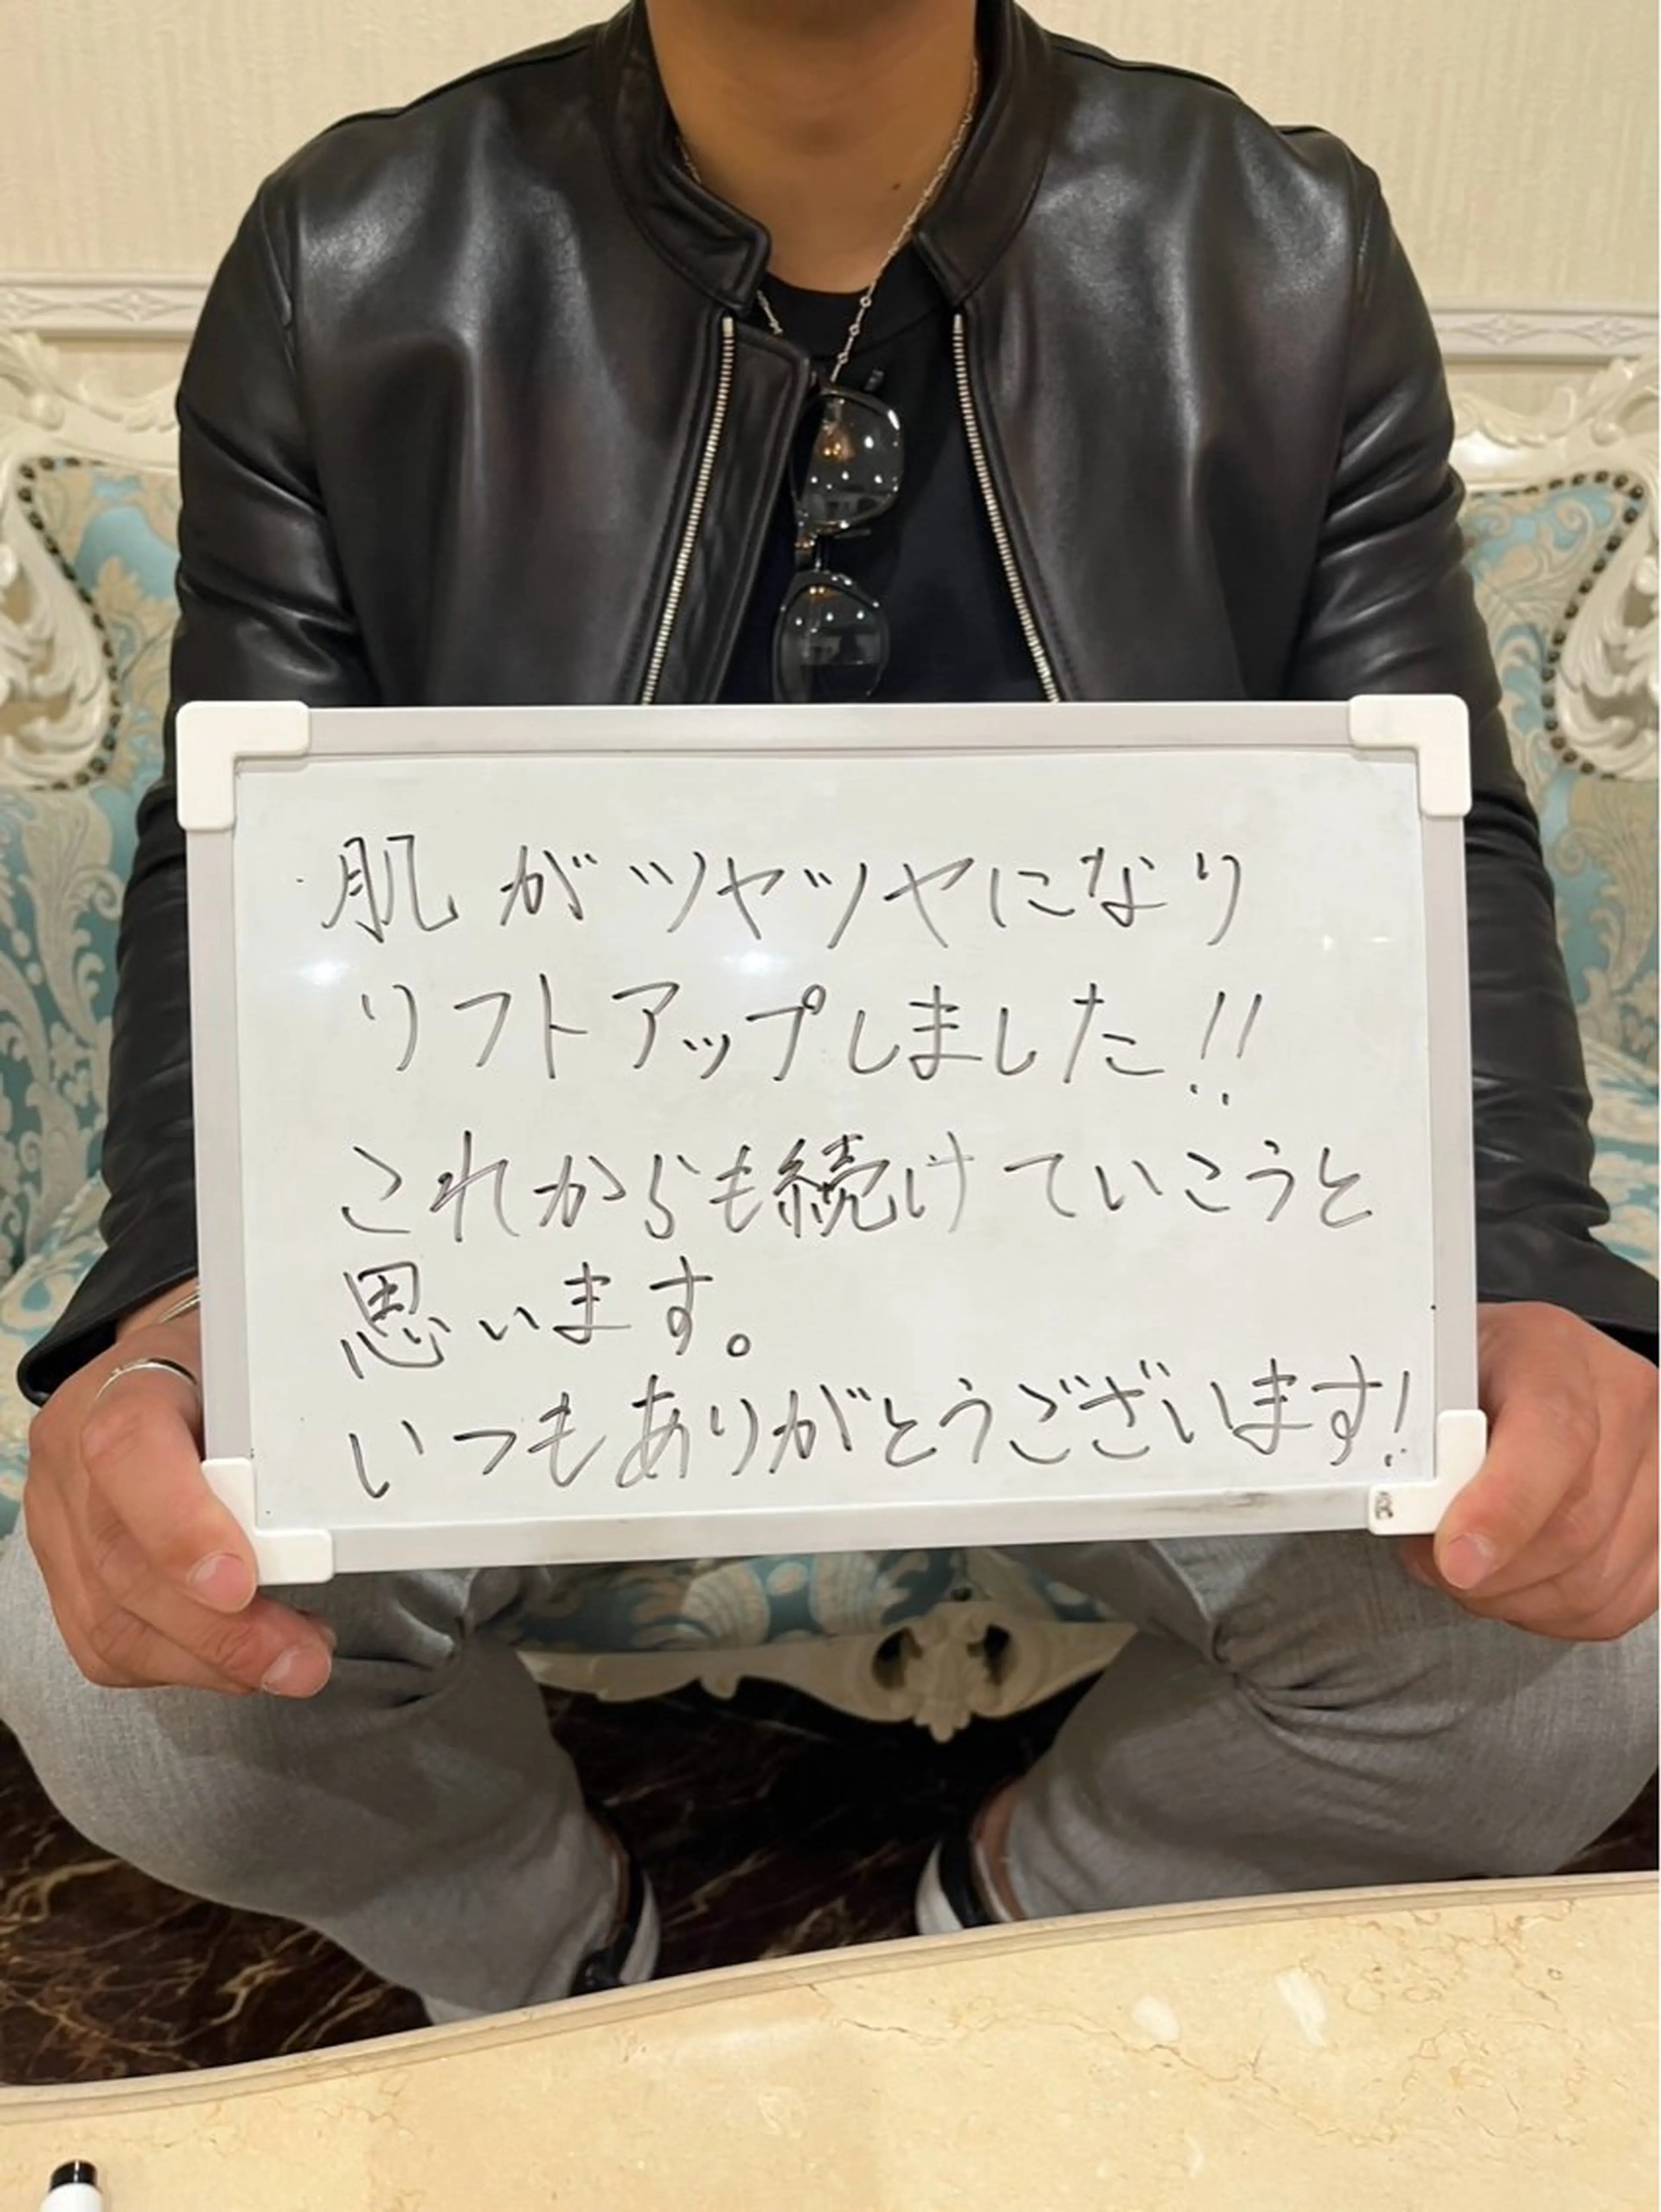 肌がツヤツヤになり
リフトアップしました!!
これからも続けていこうと
思います。
いつもありがとうございます!